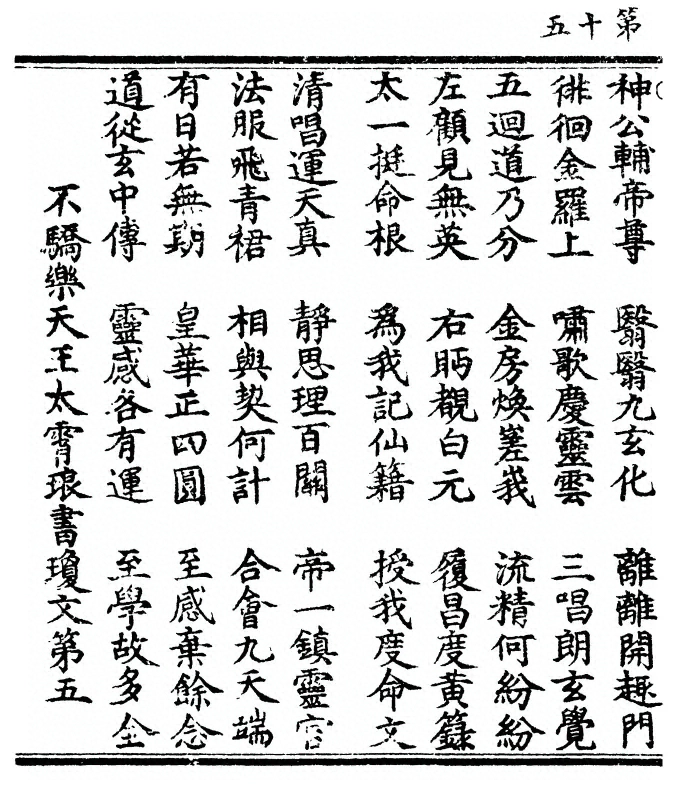 第十五
神公輔帝尊　翳翳九玄化　離離開趣門
徘徊金羅上　嘯歌慶靈雲　三唱朗玄覺
五迴道乃分　金房煥嵳峩　流精何紛紛
左顧見無英　右眄覩白元　履昌度黃籙
太一挺命根　為我記仙籍　授我度命文
清唱運天真　靜思理百關　帝一鎮靈宮
法服飛青裙　相與契何計　合會九天端
有日若無期　皇華正四圓　至感棄餘念
道從玄中傳　靈感各有運　至學故多全
不驕樂天王太霄琅書瓊文第五